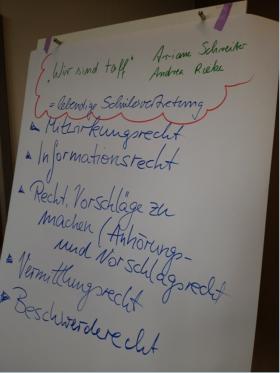 "Wir sind taff" Ariane Schreiter
Andrea Rieke
= lebendige Schülervertretung
Mitwirkungsrecht
Informationsrecht
Recht, Vorschläge zu
machen (Anhörungs-
und Vorschlagsrecht
Vermittlungsrecht
Beschwerderecht